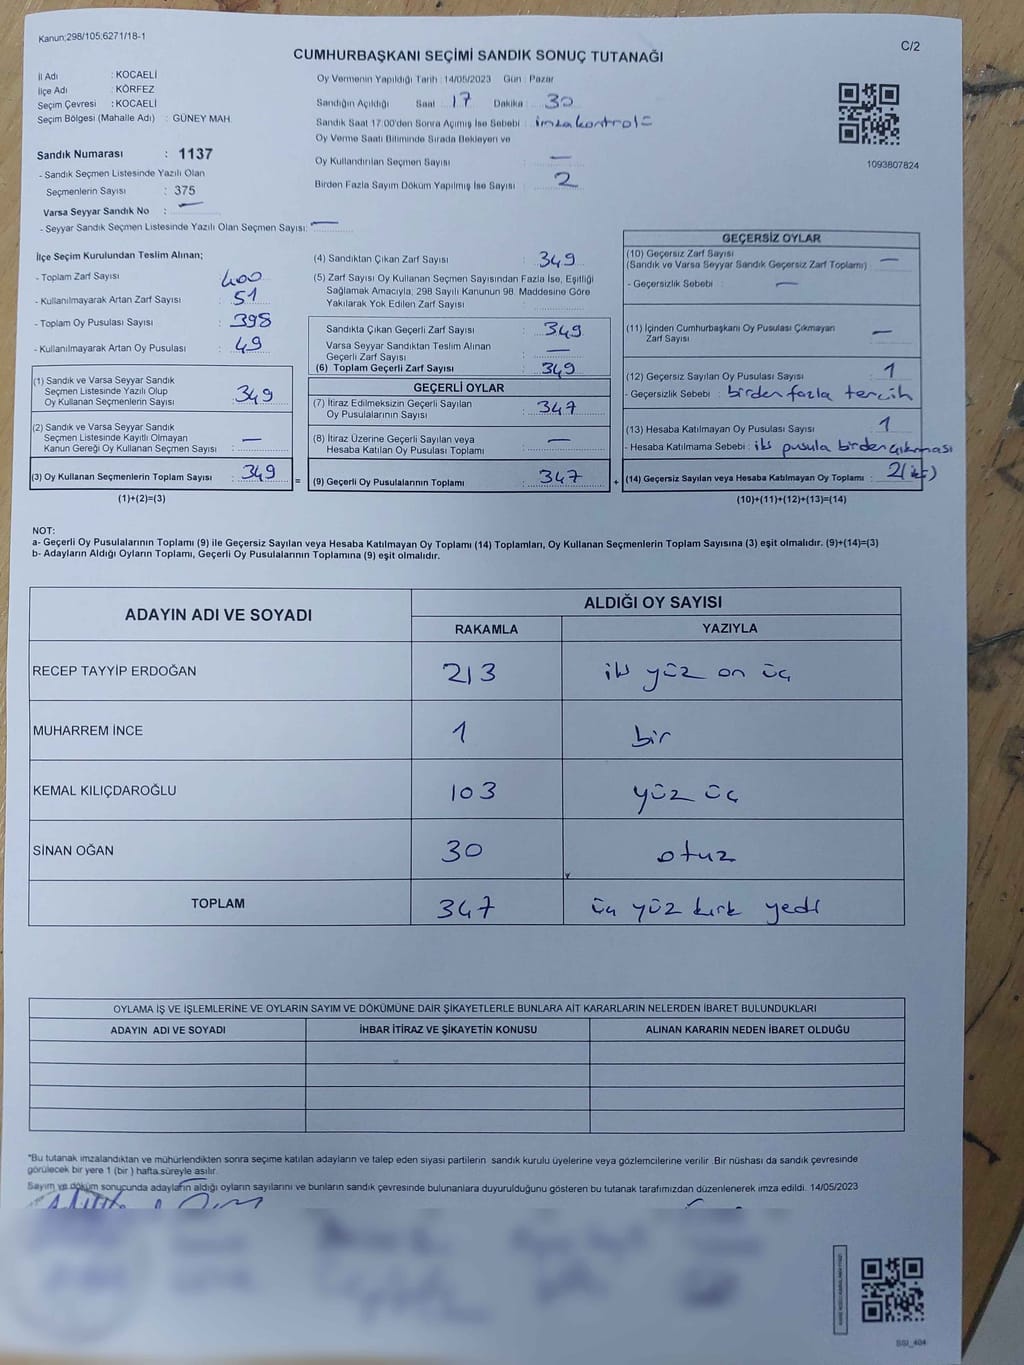 Kanun;298/105;6271/18-1
C/2
CUMHURBAŞKANI SEÇİMİ SANDIK SONUÇ TUTANAĞI
İl Adı : KOCAELİ
İlçe Adı : KÖRFEZ
Seçim Çevresi : KOCAELİ
Seçim Bölgesi (Mahalle Adı) : GÜNEY MAH.
Sandık Numarası : 1137
- Sandık Seçmen Listesinde Yazılı Olan
Seçmenlerin Sayısı : 375
Varsa Seyyar Sandık No : —
- Seyyar Sandık Seçmen Listesinde Yazılı Olan Seçmen Sayısı: —
Oy Vermenin Yapıldığı Tarih : 14/05/2023 Gün : Pazar
Sandığın Açıldığı Saat 17 Dakika : 30
Sandık Saat 17:00'den Sonra Açılmış İse Sebebi : imza kontrolü
Oy Verme Saati Bitiminde Sırada Bekleyen ve
Oy Kullandırılan Seçmen Sayısı : —
Birden Fazla Sayım Döküm Yapılmış İse Sayısı : 2
1093807824
İlçe Seçim Kurulundan Teslim Alınan;
- Toplam Zarf Sayısı : 400
- Kullanılmayarak Artan Zarf Sayısı : 51
- Toplam Oy Pusulası Sayısı : 398
- Kullanılmayarak Artan Oy Pusulası : 49
(1) Sandık ve Varsa Seyyar Sandık
Seçmen Listesinde Yazılı Olup
Oy Kullanan Seçmenlerin Sayısı : 349
(2) Sandık ve Varsa Seyyar Sandık
Seçmen Listesinde Kayıtlı Olmayan
Kanun Gereği Oy Kullanan Seçmen Sayısı : —
(3) Oy Kullanan Seçmenlerin Toplam Sayısı : 349
(1)+(2)=(3)
(4) Sandıktan Çıkan Zarf Sayısı : 349
(5) Zarf Sayısı Oy Kullanan Seçmen Sayısından Fazla İse, Eşitliği
Sağlamak Amacıyla, 298 Sayılı Kanunun 98. Maddesine Göre
Yakılarak Yok Edilen Zarf Sayısı :
Sandıkta Çıkan Geçerli Zarf Sayısı : 349
Varsa Seyyar Sandıktan Teslim Alınan
Geçerli Zarf Sayısı : —
(6) Toplam Geçerli Zarf Sayısı : 349
GEÇERLİ OYLAR
(7) İtiraz Edilmeksizin Geçerli Sayılan
Oy Pusulalarının Sayısı : 347
(8) İtiraz Üzerine Geçerli Sayılan veya
Hesaba Katılan Oy Pusulası Toplamı : —
= (9) Geçerli Oy Pusulalarının Toplamı : 347 +
GEÇERSİZ OYLAR
(10) Geçersiz Zarf Sayısı
(Sandık ve Varsa Seyyar Sandık Geçersiz Zarf Toplamı) : —
- Geçersizlik Sebebi : —
(11) İçinden Cumhurbaşkanı Oy Pusulası Çıkmayan
Zarf Sayısı : —
(12) Geçersiz Sayılan Oy Pusulası Sayısı : 1
- Geçersizlik Sebebi : birden fazla tercih
(13) Hesaba Katılmayan Oy Pusulası Sayısı : 1
- Hesaba Katılmama Sebebi : iki pusula birden çıkması
(14) Geçersiz Sayılan veya Hesaba Katılmayan Oy Toplamı : 2 (iki)
(10)+(11)+(12)+(13)=(14)
NOT:
a- Geçerli Oy Pusulalarının Toplamı (9) ile Geçersiz Sayılan veya Hesaba Katılmayan Oy Toplamı (14) Toplamları, Oy Kullanan Seçmenlerin Toplam Sayısına (3) eşit olmalıdır. (9)+(14)=(3)
b- Adayların Aldığı Oyların Toplamı, Geçerli Oy Pusulalarının Toplamına (9) eşit olmalıdır.
ADAYIN ADI VE SOYADI ALDIĞI OY SAYISI
RAKAMLA YAZIYLA
RECEP TAYYİP ERDOĞAN 213 iki yüz on üç
MUHARREM İNCE 1 bir
KEMAL KILIÇDAROĞLU 103 yüz üç
SİNAN OĞAN 30 otuz
TOPLAM 347 üç yüz kırk yedi
OYLAMA İŞ VE İŞLEMLERİNE VE OYLARIN SAYIM VE DÖKÜMÜNE DAİR ŞİKAYETLERLE BUNLARA AİT KARARLARIN NELERDEN İBARET BULUNDUKLARI
ADAYIN ADI VE SOYADI İHBAR İTİRAZ VE ŞİKAYETİN KONUSU ALINAN KARARIN NEDEN İBARET OLDUĞU
*Bu tutanak imzalandıktan ve mühürlendikten sonra seçime katılan adayların ve talep eden siyasi partilerin sandık kurulu üyelerine veya gözlemcilerine verilir. Bir nüshası da sandık çevresinde
görülecek bir yere 1 (bir ) hafta süreyle asılır.
Sayım ve döküm sonucunda adayların aldığı oyların sayılarını ve bunların sandık çevresinde bulunanlara duyurulduğunu gösteren bu tutanak tarafımızdan düzenlenerek imza edildi. 14/05/2023